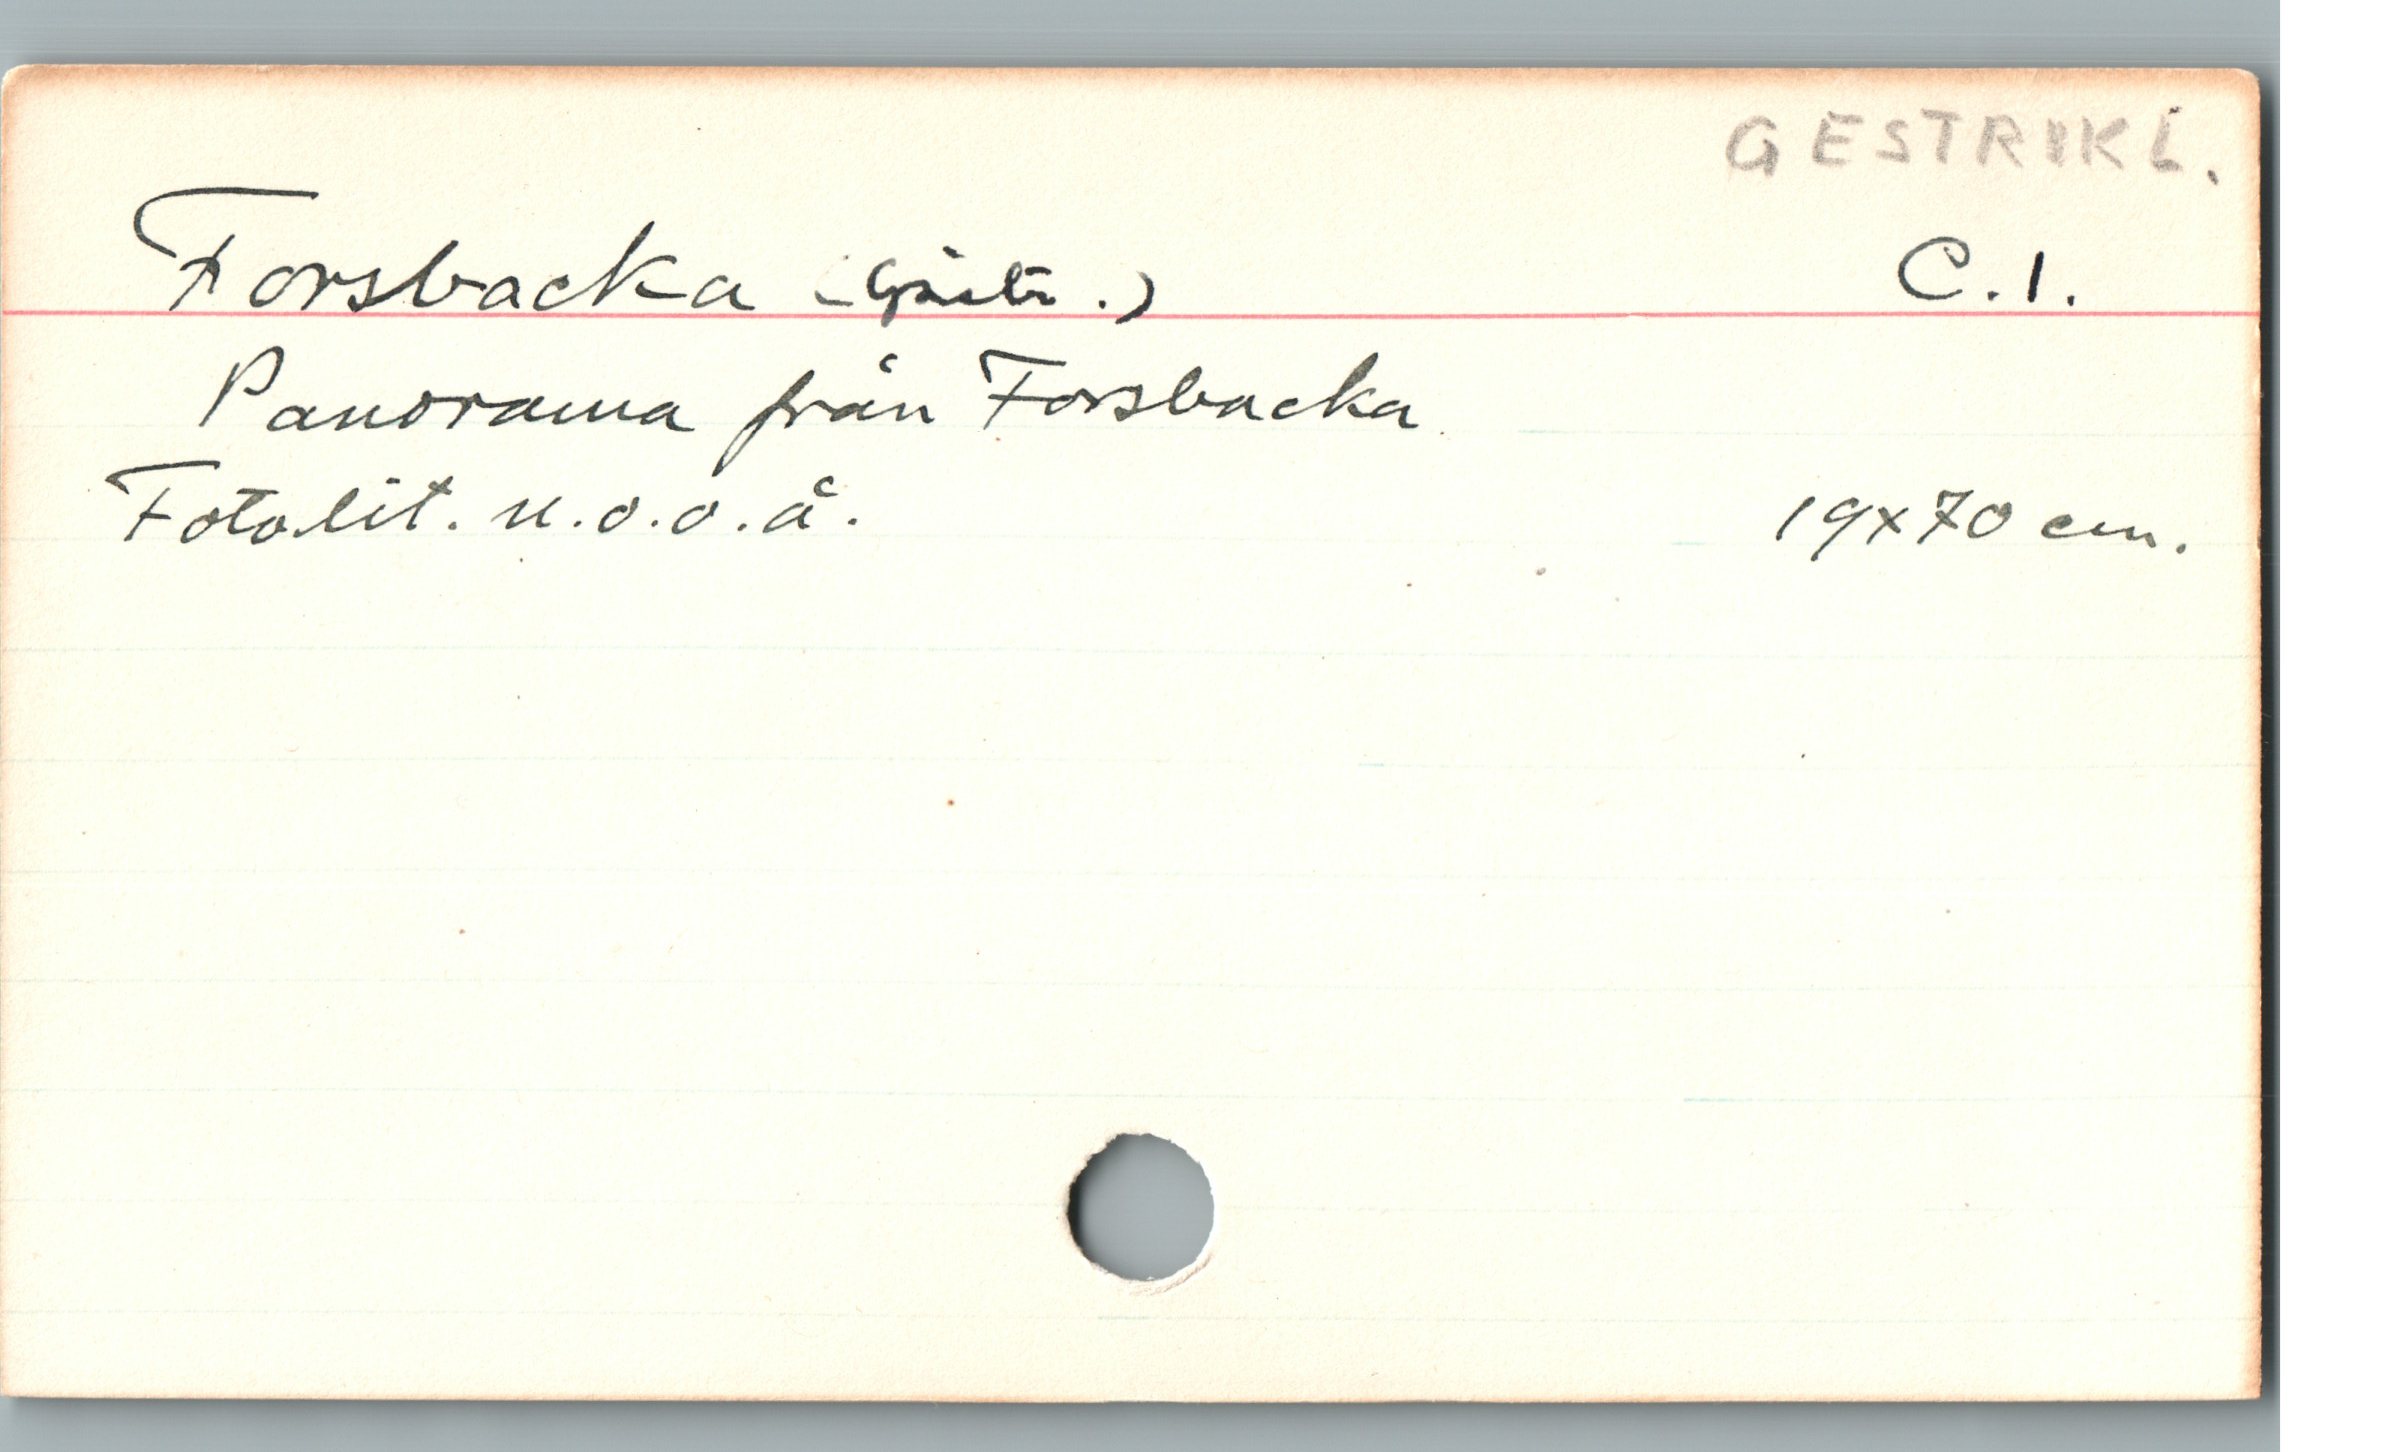 GESTRIKL.
Forsbacka (Gästr.) C.1.
Panorama från Forsbacka
Fotolit. u.o.o.å. 19x70 cm.